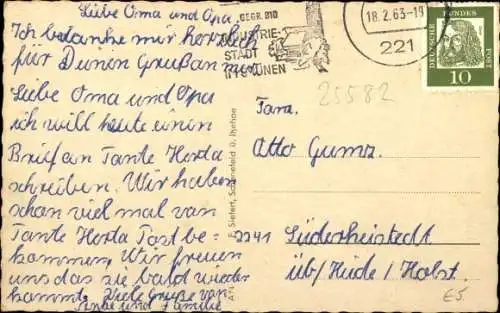 Liebe Oma und Opa,
Ich bedanke mir herzlich
für Deinen Gruß an mir.
Liebe Oma und Opa
ich will heute einen
Brief an Tante Herta
schreiben. Wir haben
schon viel mal von
Tante Herta Post be-
kommen. Wir freuen
uns das sie bald wieder
kommt. Viele Grüße von
und Familie
GEGR. 810
INDUSTRIE-
STADT
IM GRÜNEN
18.2.63-19
221
DEUTSCHE BUNDESPOST
10
25582
Fam.
Otto Gumz
2241 Süderheistedt
üb/Heide / Holst.
F. Siefert, Schönefeld ü. Itzehoe
E5